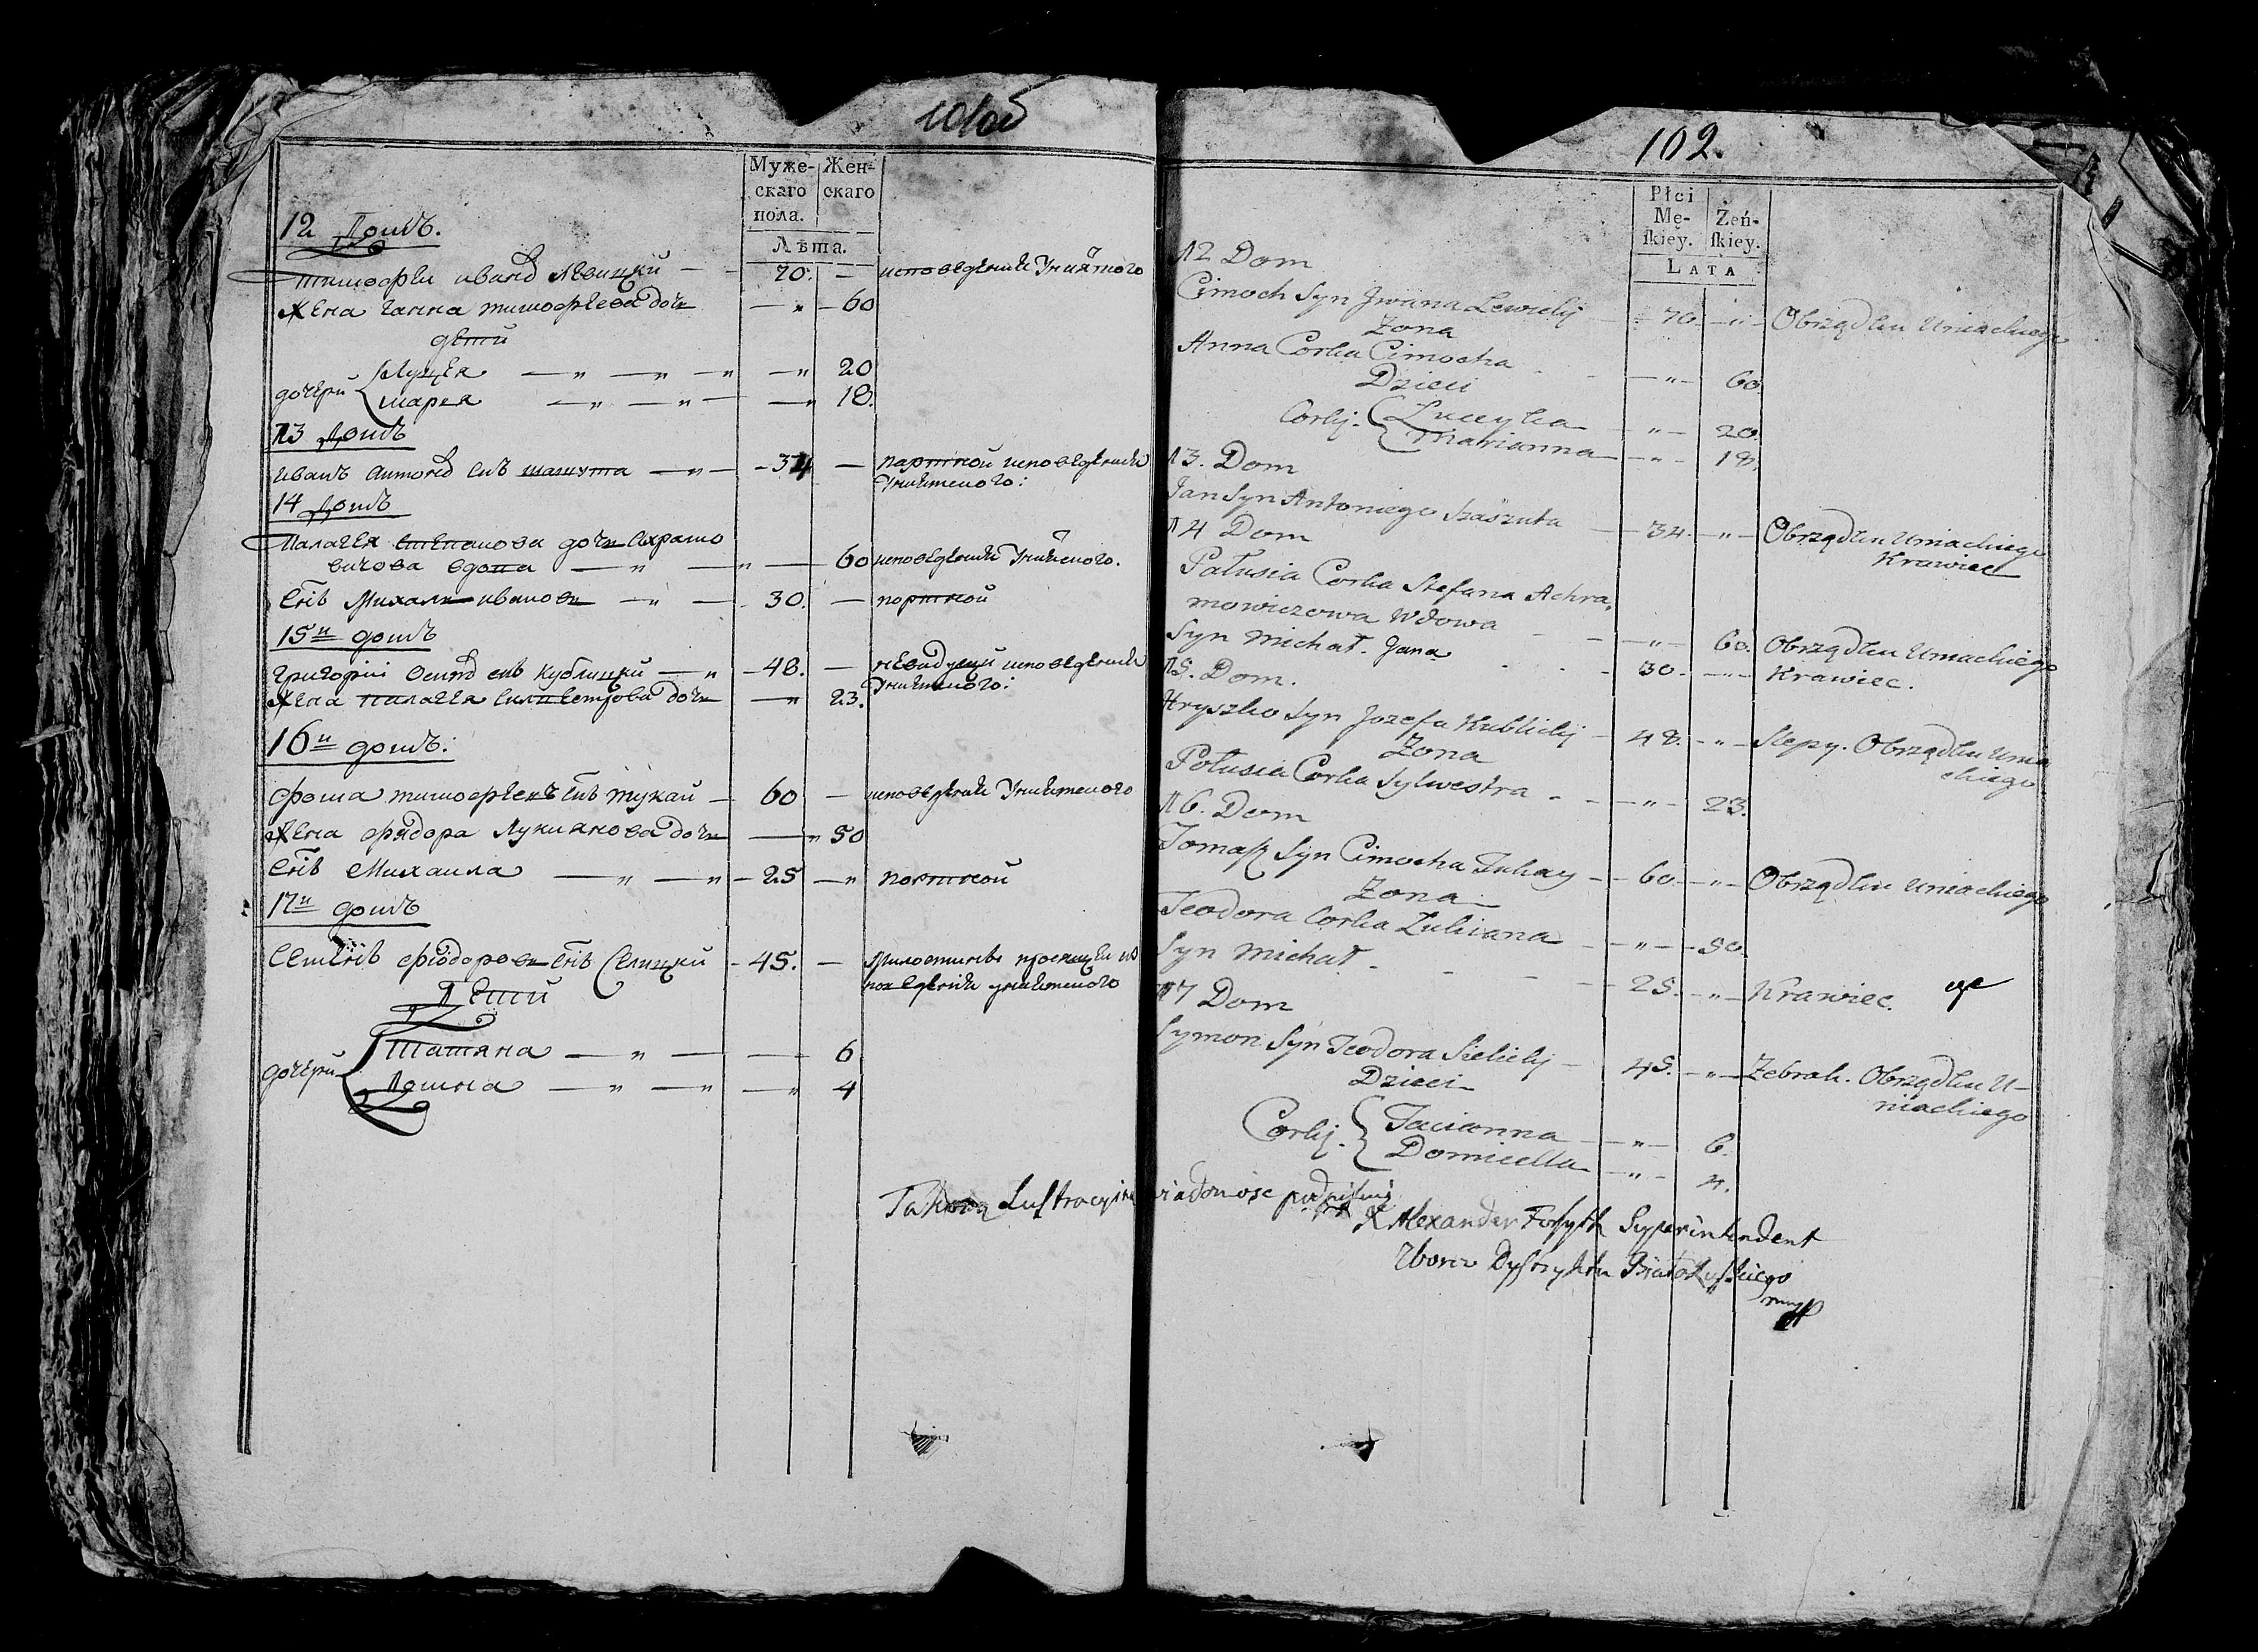 101об
Муже- Жен-
скаго скаго
пола.
Лѣта.
12 Домъ.
Тимофеи иванд Левицки — 70. — исповеденія Униятского
Жена ганна тимофеева дочь — „ — 60
дети
дочери { Луцея — „ — „ — „ — „ 20
марея — „ — „ — „ 18.
13 домъ
иванъ антонд снъ шашута — „ — 34 — партной исповеденія
Униятского:
14 домъ
Палагея степанова дочь Ахрамо
вичова вдова — „ — „ — 60 исповеденія Униятского.
снъ Михаль ивановъ — „ — 30. — портной
15й домъ
григоріи осипд снъ кублицки — „ — 48. — невидущи исповеденія
Униятского:
Жена палагея силвестрова дочь — „ 23.
16й домъ:
фома тимофеевъ снъ тукаи — 60 — исповеденія Униятского
Жена фядора Лукиянова дочь — „ 50
снъ Михаила — „ — „ — 25 — „ портной
17й домъ
Семенъ фіодоровъ снъ Селицки — 45. — милостинѣ просящи ис
поведенія униятского
Дети
дочери { Татяна — „ — — 6
Домна — „ — „ — „ 4
102.
Płci
Mę- Żeń-
skiey. skiey.
LATA
12 Dom
Cimoch Syn Jwana Lewicky — 70. — „ — Obrządku Uniackiego
Zona
Anna Corka Cimocha — „ — 60.
Dzieci
Corky. { Lucyka — „ — 20.
Marianna — „ — 18.
13. Dom
Jan Syn Antoniego Szaszuta — 34. — „ — Obrządku Uniackiego
Krawiec
14 Dom
Palusia Corka Stefana Achra,
mowiczowa Wdowa — „ — 60. Obrządku Uniackiego
Syn Michał. Jana — 30. — „ — Krawiec.
15. Dom.
Hryszko Syn Jozefa Kublicky — 48. — „ — Slepy. Obrządku Unia
ckiego
Zona
Połusia Corka Sylwestra — „ — 23.
16. Dom
Tomasz Syn Cimocha Tukay — 60. — „ — Obrządku Uniackiego
Zona
Teodora Corka Lukiana — „ — 50.
Syn Michał — 25. — „ — Krawiec.
17 Dom
Symon Syn Teodora Sielicky — 45. — „ — Zebrak. Obrządku U-
niackiego
Dzieci
Corky. { Tacianna — „ — 6.
Domicella — „ — 4.
Takową Lustracyiną wiadomosc podpisuię
X Alexander Forsyth Superintendent
Zborow Dystryktu Białoruskiego
mpp